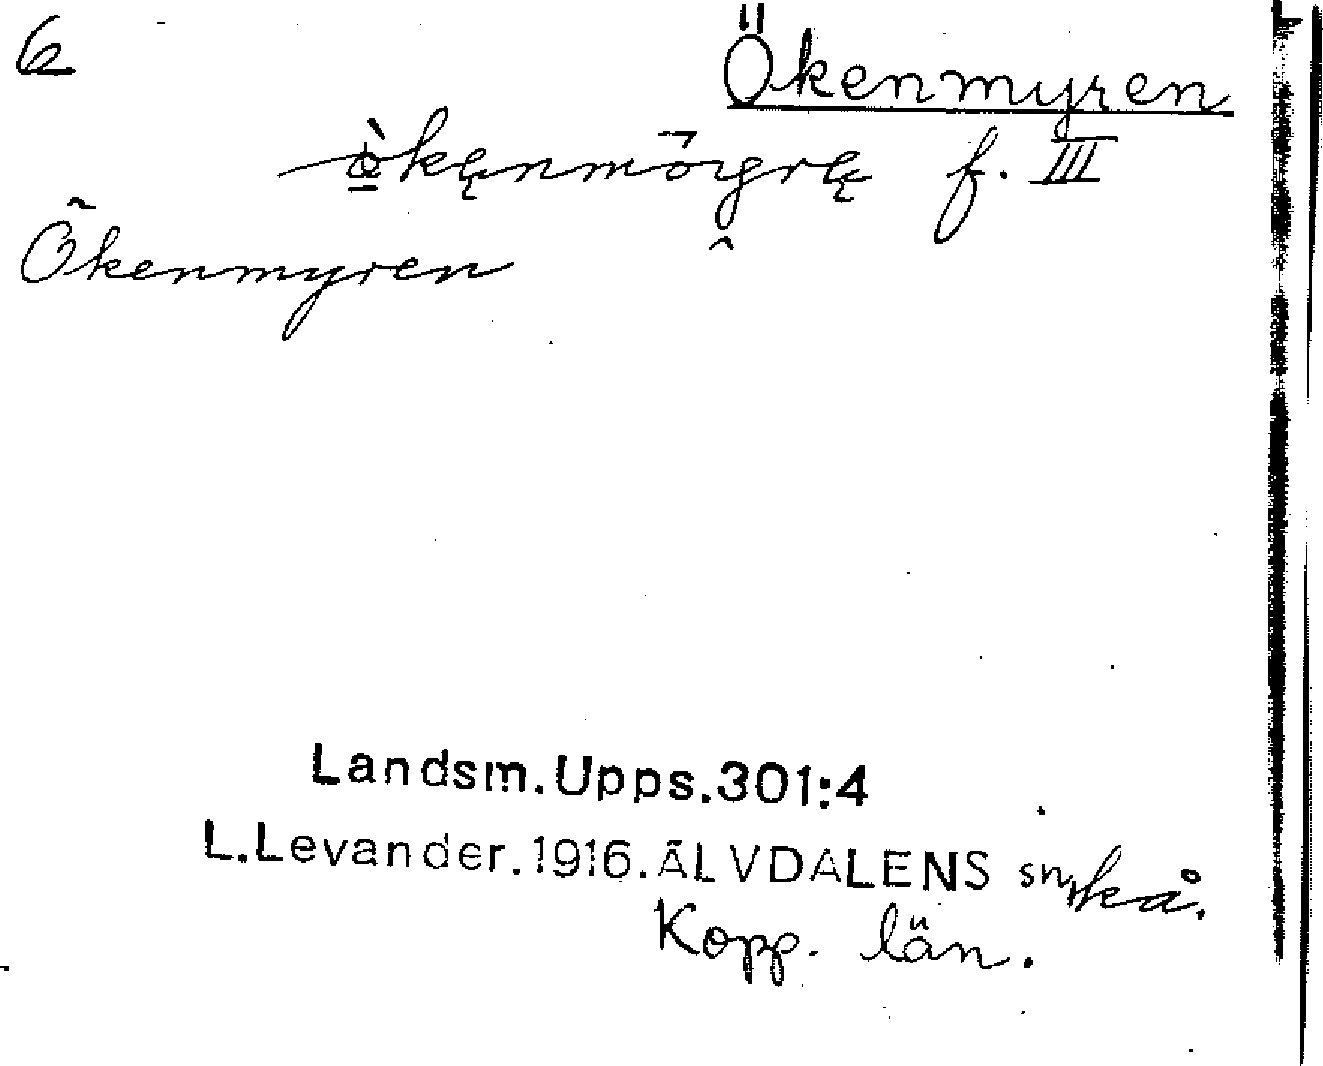 6
Ökenmyren
f. III
Ökenmyren
Landsm.Upps.301:4
L.Levander.1916.ÄLVDALENS sn,
Kopp. län.